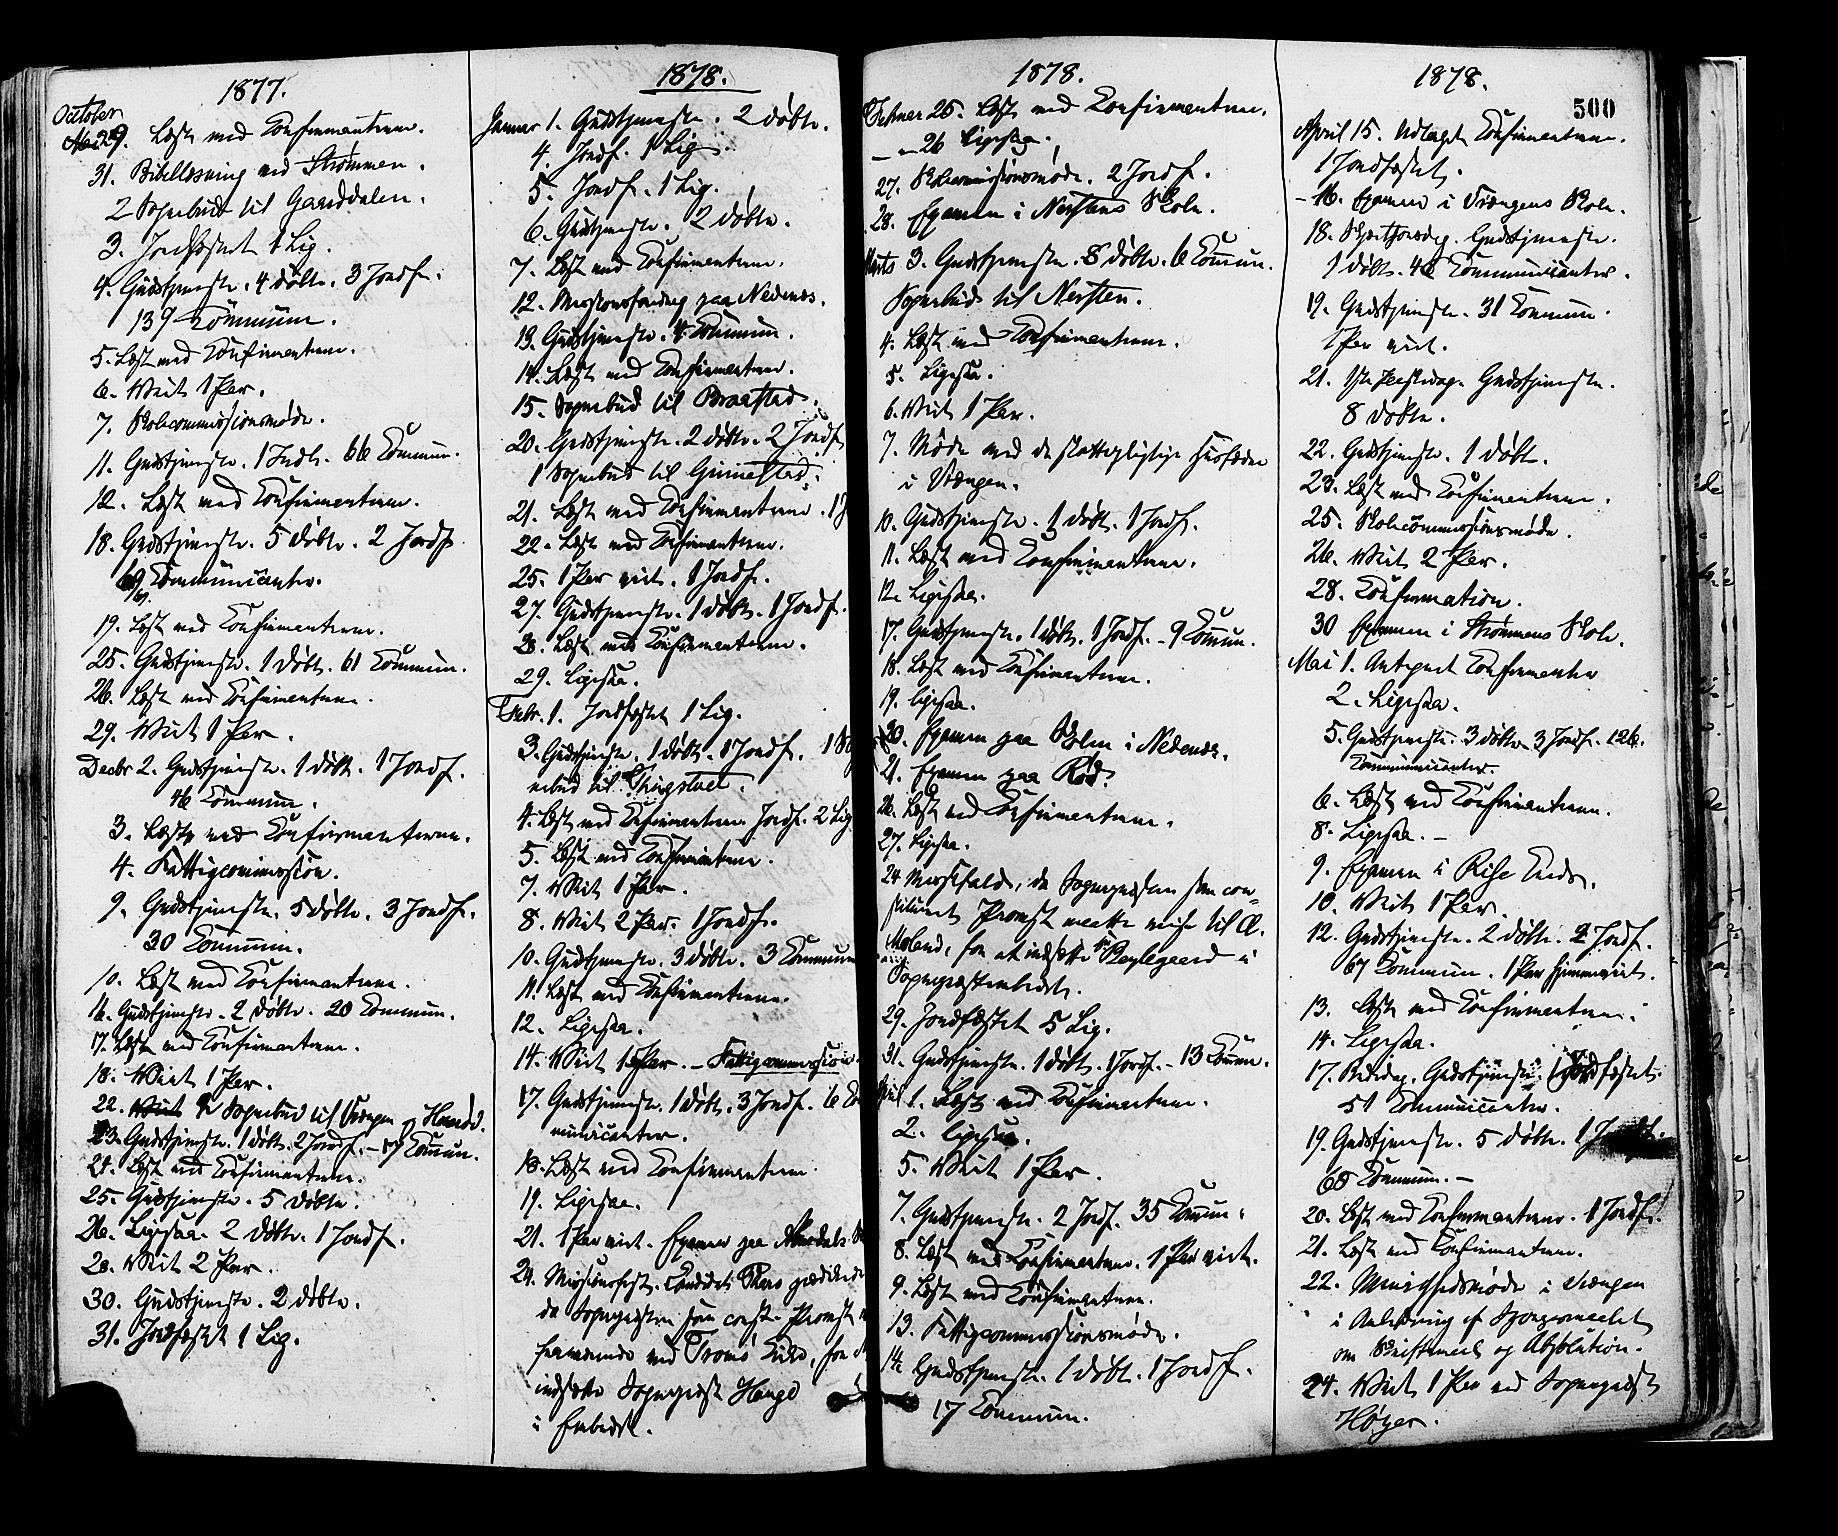 1877.
October
29. Læst med Confirmanterne.
31. Bibellæsning ved Strømmen.
2 Sognebud til Gaarddalen.
3. Jordfæstet 1 Lig.
4. Gudstjeneste. 4 døbte. 3 Jordf.
139 Commun.
5. Læst med Confirmanterne.
6. Viet 1 Par.
7. Skolecommissionsmøde.
11. Gudstjeneste. 1 Indl. 66 Commun.
12. Læst med Confirmanterne.
18. Gudstjeneste. 5 døbte. 2 Jordf.
69 Communicanter.
19. Læst med Confirmanterne.
25. Gudstjeneste. 1 døbt. 61 Commun.
26. Læst med Confirmanterne.
29. Viet 1 Par.
Decbr 2. Gudstjeneste. 1 døbt. 1 Jordf.
46 Commun.
3. Læst med Confirmanterne.
4. Fattigcommission.
9. Gudstjeneste. 5 døbte. 3 Jordf.
30 Commun.
10. Læst med Confirmanterne.
16. Gudstjeneste. 2 døbte. 20 Commun.
17. Læst med Confirmanterne.
18. Viet 1 Par.
22. Viet 2 Sognebud til og
23. Gudstjeneste. 1 døbt. 2 Jordf. - 57 Commun.
24. Læst med Confirmanterne.
25. Gudstjeneste. 5 døbte.
26. Ligesaa. 2 døbte. 1 Jordf.
28. Viet 2 Par.
30. Gudstjeneste. 2 døbte.
31. Jordfæstet 1 Lig.
1878.
Januar 1. Gudstjeneste. 2 døbte.
4. Jordf. 1 Lig.
5. Jordf. 1 Lig.
6. Gudstjeneste. 2 døbte.
7. Læst med Confirmanterne.
12. Missionsforedrag paa Nedenes.
13. Gudstjeneste. 4 Commun.
14. Læst med Confirmanterne.
15. Sognebud til Braastad.
20. Gudstjeneste. 2 døbte. 2 Jordf
1 Sognebud til Gimnestad.
21. Læst med Confirmanterne. 1 J
22. Læst med Confirmanterne.
25. 1 Par viet. 1 Jordf.
27. Gudstjeneste. 1 døbt. 1 Jordf.
28. Læst med Confirmanterne.
29. Ligesaa.
Febr. 1. Jordfæstet 1 Lig.
3. Gudstjeneste. 1 døbt. 1 Jordf. 1 Sog
nebud til Thingstuet.
4. Læst med Confirmanterne. Jordf. 2 Lig
5. Læst med Confirmanterne.
7. Viet 1 Par.
8. Viet 2 Par. 1 Jordf.
10. Gudstjeneste. 3 døbte. 3 Commun
11. Læst med Confirmanterne.
12. Ligesaa.
14. Viet 1 Par. - Fattigcommission.
17. Gudstjeneste. 1 døbt. 3 Jordf. 6 Com
municanter.
18. Læst med Confirmanterne.
19. Ligesaa.
21. 1 Par viet. Examen paa
24. Missionsfest. Candidat prædikede
da Sognepresten som const. Provst
fraværende ved Tromø Kirke, for
indsætte Sogneprest Hauge
i Embedet.
1878.
Februar 25. Læst med Confirmanterne.
- " - 26 Ligesaa.
27. Skolecommissionsmøde. 2 Jordf.
28. Examen i Nerstens Skole.
Marts 3. Gudstjeneste. 8 døbte. 6 Commun.
Sognebud til Nersten.
4. Læst med Confirmanterne.
5. Ligesaa.
6. Viet 1 Par.
7. Møde med de skattepligtige Husfædre
i Vrængen.
10. Gudstjeneste. 1 døbt. 1 Jordf.
11. Læst med Confirmanterne.
12. Ligesaa.
17. Gudstjeneste. 1 døbt. 1 Jordf. - 9 Commun.
18. Læst med Confirmanterne.
19. Ligesaa.
20. Examen paa Skolen i Nedenæs.
21. Examen paa Rød.
26. Læst med Confirmanterne.
27. Ligesaa.
24 Messefald, da Sognepresten som con-
stitueret Provst maatte reise til Ø.
Moland, for at indsætte Beylegaard i
Sogneprestembedet.
29. Jordfæstet 5 Lig.
31. Gudstjeneste. 1 døbt. 1 Jordf. - 13 Commun.
April 1. Læst med Confirmanterne.
2. Ligesaa.
5. Viet 1 Par.
7. Gudstjeneste. 2 Jordf. 35 Commun.
8. Læst med Confirmanterne. 1 Par viet.
9. Læst med Confirmanterne.
13. Fattigcommissionsmøde.
14. Gudstjeneste. 1 døbt. 1 Jordf.
17 Commun.
1878.
500
April 15. Udlagt Confirmanterne.
1 Jordfæstet.
- 16. Examen i Vrængens Skole.
18. Skjærthorsdag. Gudstjeneste.
1 døbt. 46 Communicanter.
19. Gudstjeneste. 31 Commun.
1 Par viet.
21. 1ste Paaskedag. Gudstjeneste.
8 døbte.
22. Gudstjeneste. 1 døbt.
23. Læst med Confirmanterne.
25. Skolecommissionsmøde.
26. Viet 2 Par.
28. Confirmation.
30 Examen i Strømmens Skole.
Mai 1. Antegnet Confirmanter
2. Ligesaa.
5. Gudstjeneste. 3 døbte 3 Jordf. 126.
Communicanter.
6. Læst med Confirmanterne.
8. Ligesaa. -
9. Examen i Rise Kreds.
10. Viet 1 Par.
12. Gudstjeneste. 2 døbte. 2 Jordf.
67 Commun. 1 Par hjemmeviet.
13. Læst med Confirmanterne.
14. Ligesaa.
17. Bededag. Gudstjeneste. 1 Jordfæstet.
51 Communicanter.
19. Gudstjeneste. 5 døbte. 1 Jordf.
68 Commun. -
20. Læst med Confirmanterne. 1 Jordf.
21. Læst med Confirmanterne.
22. Menighedsmøde i Vrængen
i Anledning af Spørgsmaalet
om Skriftemaal og Absolution.
24. Viet 1 Par ved Sogneprest
Høyer.